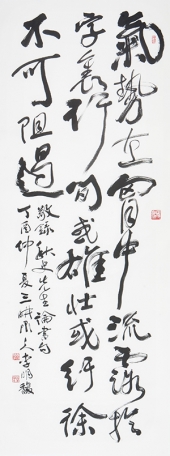 氣勢在胷中流露於
字裏行間或雄壯或紆徐
不可阻遏
敬錄秋史先生論書句
丁酉仲夏三峽閒人李